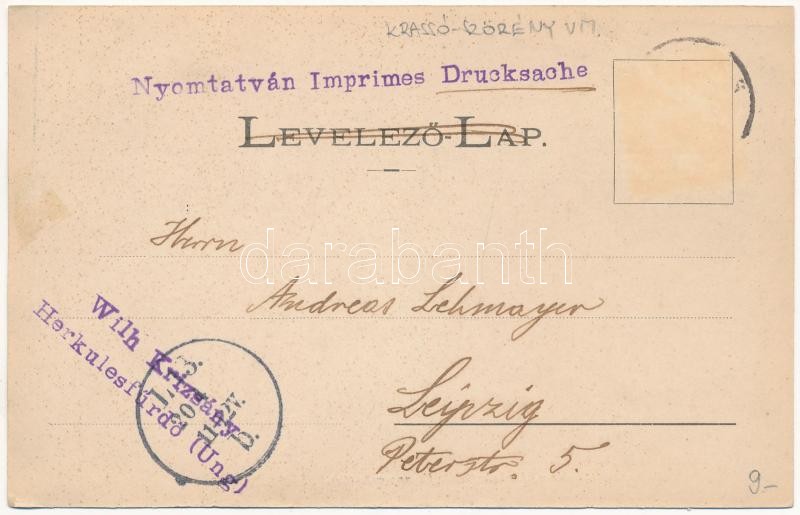 KRASSÓ-SZÖRÉNY VM.
Nyomtatván Imprimes Drucksache
LEVELEZŐ-LAP.
Herrn
darabanth
Andreas Lehmayer
Wilh Krizsány
Herkulesfürdő (Ung)
Leipzig
Peterstr. 5.
9-